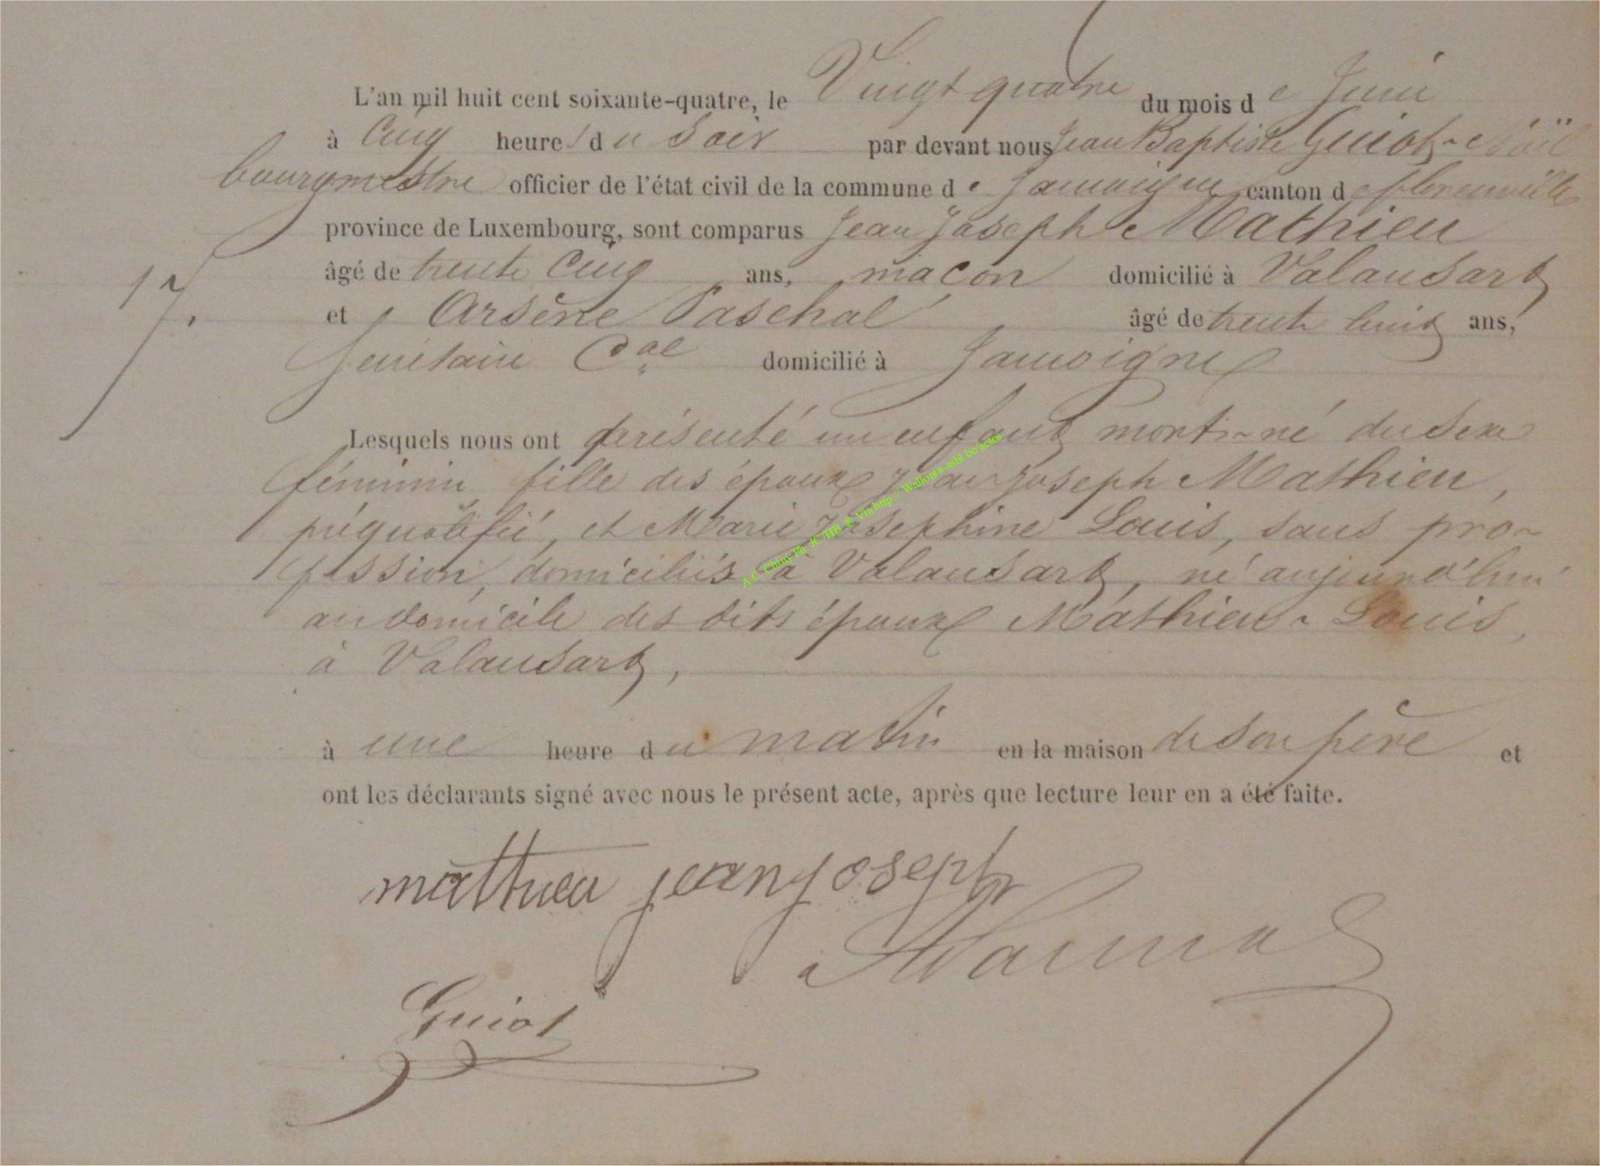 L'an mil huit cent soixante-quatre, le Vingt quatre du mois de Juin
à Cinq heures du Soir par devant nous Jean Baptiste Guiot-Noël
bourgmestre officier de l'état civil de la commune de Jamoigne canton de florenville
province de Luxembourg, sont comparus Jean Joseph Mathieu
âgé de trente Cinq ans, maçon domicilié à Valansart
17.
et Arsène Paschal âgé de trente huit ans,
Secrétaire Cal domicilié à Jamoigne
Lesquels nous ont présenté un enfant mort-né du sexe
féminin, fille des époux Jean Joseph Mathieu,
préqualifié, et Marie Josephine Louis, sans pro-
fession, domiciliés à Valansart, né aujourd'hui
au domicile des dits époux Mathieu-Louis,
à Valansart,
à une heure du matin en la maison de son père et
ont les déclarants signé avec nous le présent acte, après que lecture leur en a été faite.
mathieu jean joseph
Guiot